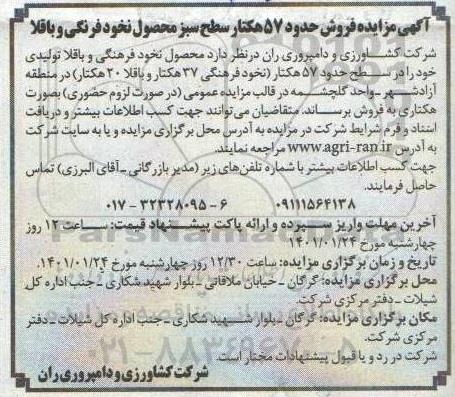 آگهی مزایده فروش حدود ۵۷ هکتار سطح سبز محصول نخود فرنگی و باقلا
شرکت کشاورزی و دامپروری ران درنظر دارد محصول نخود فرهنگی و باقلا تولیدی
خود را در سطح حدود ۵۷ هکتار (نخود فرهنگی ۳۷ هکتار و باقلا ۲۰ هکتار) در منطقه
آزادشهر-واحد گلچشمه در قالب مزایده عمومی (در صورت لزوم حضوری) بصورت
هکتاری به فروش برساند. متقاضیان می‌توانند جهت کسب اطلاعات بیشتر و دریافت
اسناد و فرم شرایط شرکت در مزایده به آدرس محل برگزاری مزایده و یا به سایت شرکت
به آدرس www.agri-ran.ir مراجعه نمایند.
جهت کسب اطلاعات بیشتر با شماره تلفن‌های زیر (مدیر بازرگانی-آقای البرزی) تماس
حاصل فرمایند.
۰۹۱۱۱۵۶۴۱۳۸ ۰۱۷-۳۲۳۲۸۰۹۵-۶
آخرین مهلت واریز سپرده و ارائه پاکت پیشنهاد قیمت: ساعت ۱۲ روز
چهارشنبه مورخ ۱۴۰۱/۰۱/۲۴
تاریخ و زمان برگزاری مزایده: ساعت ۱۲/۳۰ روز چهارشنبه مورخ ۱۴۰۱/۰۱/۲۴.
محل برگزاری مزایده: گرگان-خیابان ملاقاتی-بلوار شهید شکاری-جنب اداره کل
شیلات-دفتر مرکزی شرکت.
مکان برگزاری مزایده: گرگان-بلوار شهید شکاری-جنب اداره کل شیلات-دفتر
مرکزی شرکت.
شرکت در رد و یا قبول پیشنهادات مختار است.
شرکت کشاورزی و دامپروری ران
ParsNamadData
۰۲۱-۸۸۳۴۹۶۷۰-۵